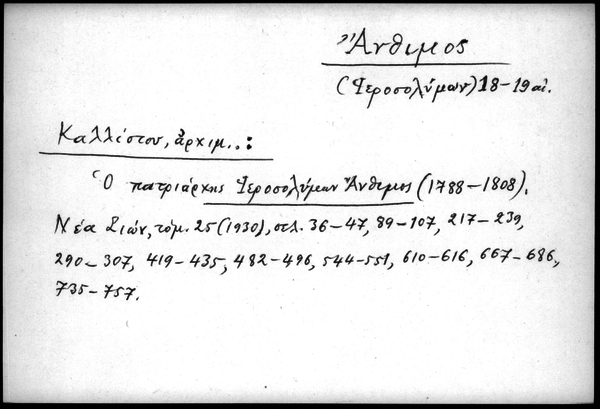 Ἄνθιμος
(Ἱεροσολύμων) 18–19 αἰ.
Καλλίστου, ἀρχιμ..:
Ὁ πατριάρχης Ἱεροσολύμων Ἄνθιμος (1788–1808).
Νέα Σιών, τόμ. 25 (1930), σελ. 36–47, 89–107, 217–239,
290–307, 419–435, 482–496, 544–551, 610–616, 667–686,
735–757.